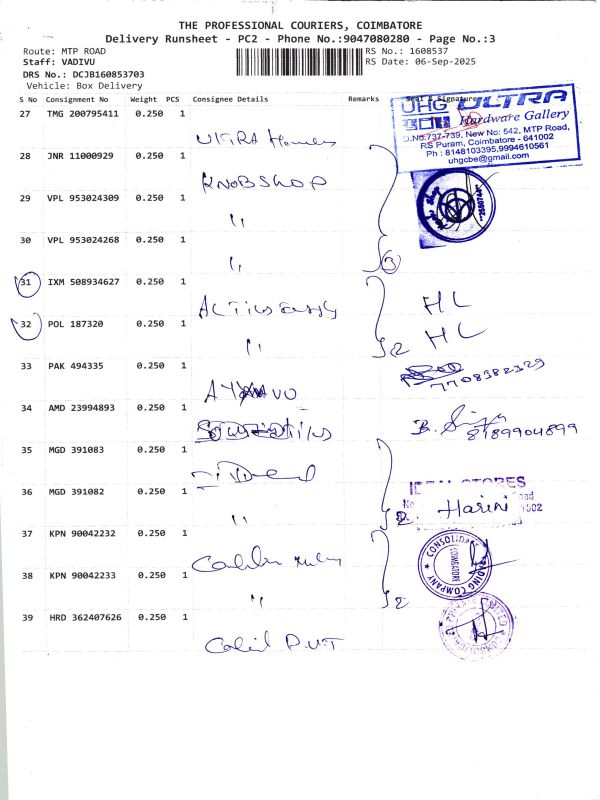 THE PROFESSIONAL COURIERS, COIMBATORE
Delivery Runsheet - PC2 - Phone No.:9047080280 - Page No.:3
Route: MTP ROAD
RS No.: 1608537
Staff: VADIVU
RS Date: 06-Sep-2025
DRS No.: DCJB160853703
Vehicle: Box Delivery
S No Consignment No Weight PCS Consignee Details Remarks Seal & Signature
27 TMG 200795411 0.250 1
UHG ULTRA
Hardware Gallery
D.No:737-739, New No: 542, MTP Road,
RS Puram, Coimbatore - 641002
Ph : 8148103395,9994610561
uhgcbe@gmail.com
28 JNR 11000929 0.250 1
KNOBSHOP
29 VPL 953024309 0.250 1
"
30 VPL 953024268 0.250 1
"
3
31 IXM 508934627 0.250 1
HL
32 POL 187320 0.250 1
"
2
HL
33 PAK 494335 0.250 1
7708382329
34 AMD 23994893 0.250 1
8189904899
35 MGD 391083 0.250 1
36 MGD 391082 0.250 1
"
2
IDEAL STORES
Harini
37 KPN 90042232 0.250 1
CONSOLIDATED TRADING COMPANY
COIMBATORE
38 KPN 90042233 0.250 1
"
2
39 HRD 362407626 0.250 1